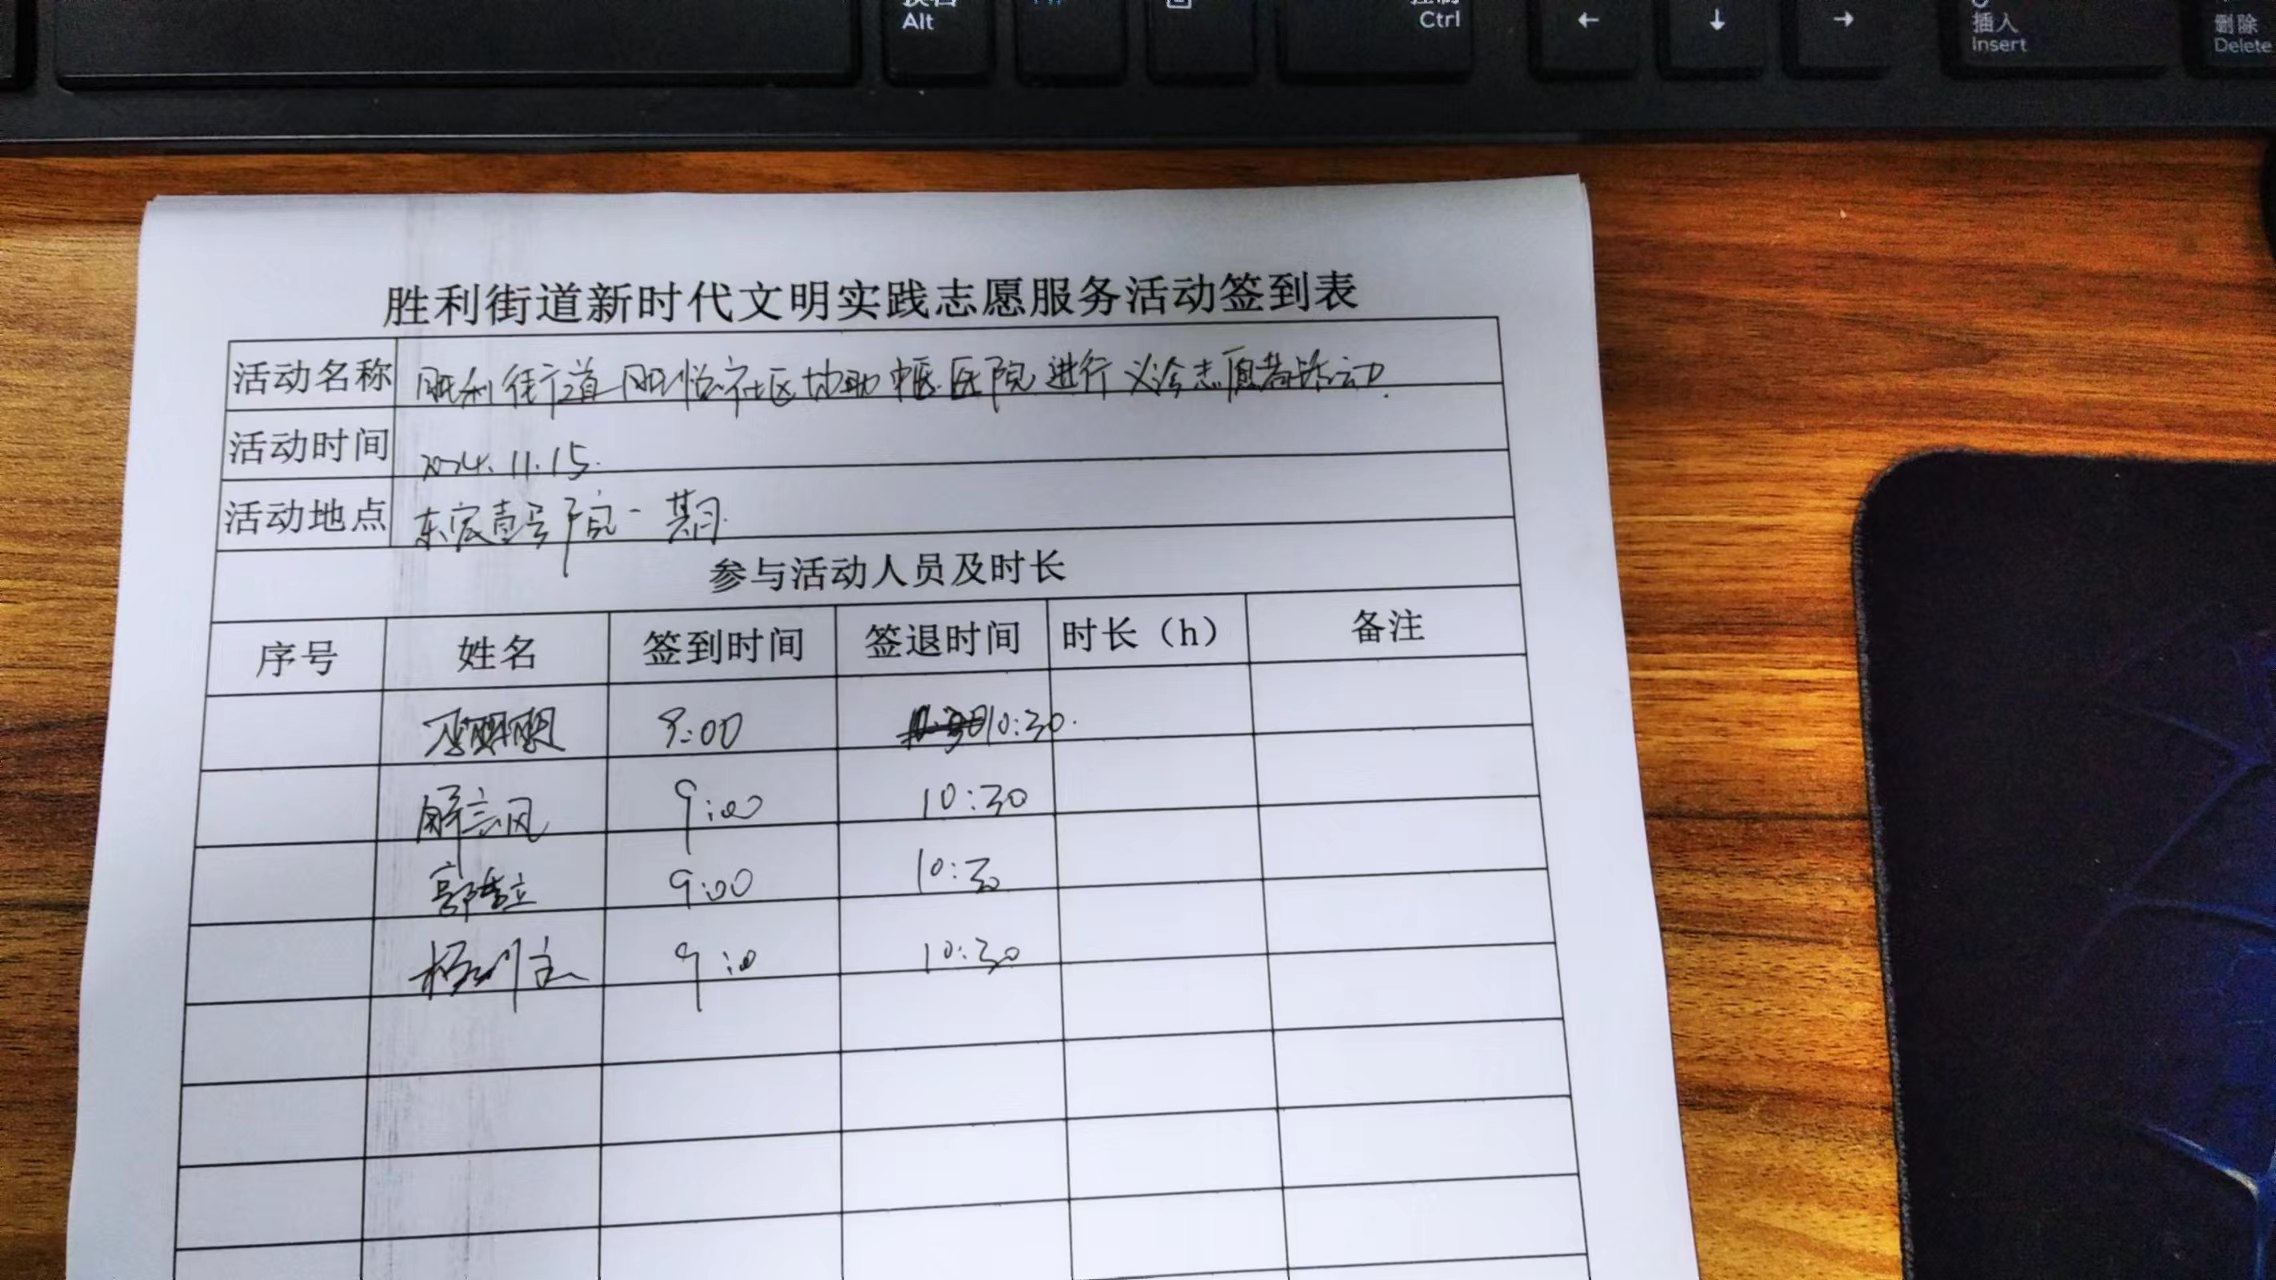 Alt
Ctrl
←
↓
→
插入
Insert
删除
Delete
胜利街道新时代文明实践志愿服务活动签到表
活动名称 胜利街道胜怡社区协助中医医院进行义诊志愿者活动.
活动时间 2024.11.15.
活动地点 东宸壹号院一期.
参与活动人员及时长
序号 姓名 签到时间 签退时间 时长（h） 备注
8:00 10:30.
9:00 10:30
9:00 10:30
9:00 10:30